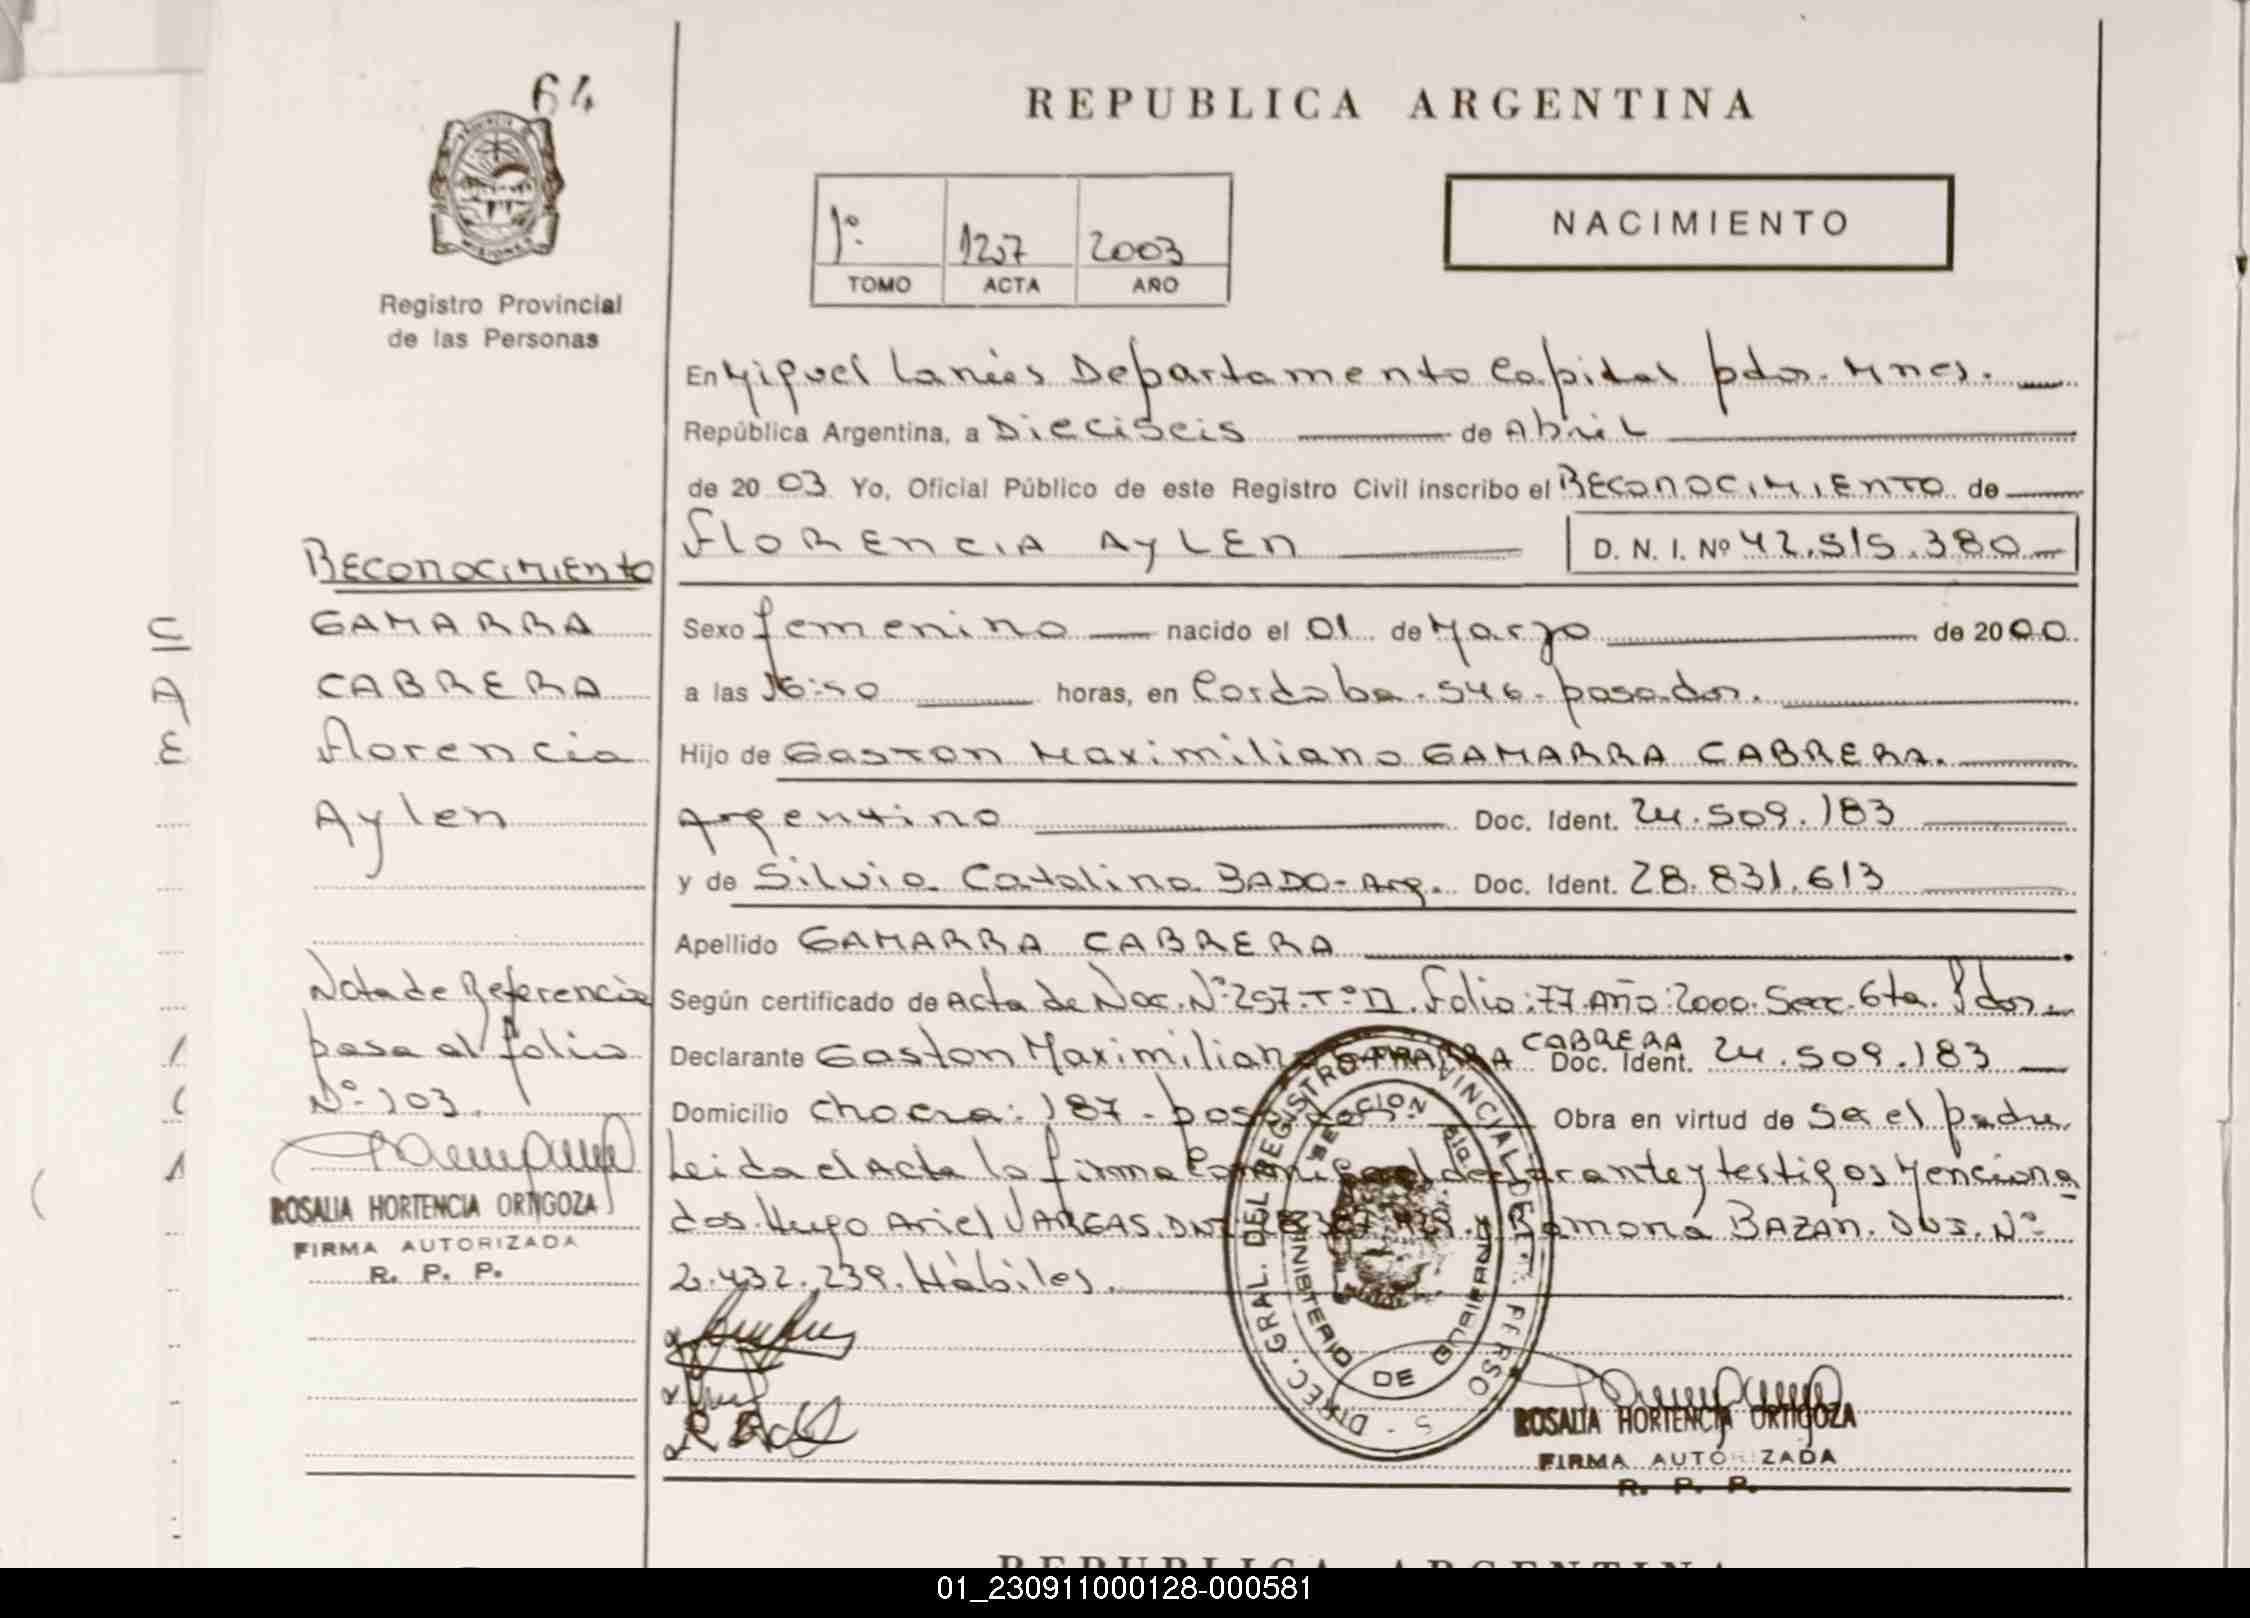 64
REPUBLICA ARGENTINA
PROVINCIA DE
MISIONES
Registro Provincial
de las Personas
1º 1207 2003
TOMO ACTA AÑO
NACIMIENTO
En Miguel Lanús Departamento Capital pdas. Mnes.
República Argentina, a Dieciseis de Abril
de 20 03 Yo, Oficial Público de este Registro Civil inscribo el RECONOCIMIENTO de
FLORENCIA AYLEN D. N. I. Nº 42.515.380
Sexo femenino nacido el 01 de Marzo de 20 00
a las horas, en Cordoba. 546. posadas.
Hijo de Gaston Maximiliano GAMARRA CABRERA.
Argentino Doc. Ident. 24.509.183
y de Silvia Catalina BADO - Arg. Doc. Ident. 28.831.613
Apellido GAMARRA CABRERA
Según certificado de Acta de Nac. Nº 257. Tº II. Folio: 77. Año: 2000. Secc. 6ta. Pdas.
Declarante Gaston Maximiliano GAMARRA CABRERA Doc. Ident. 24.509.183
Domicilio Chacra: 187 - posadas Obra en virtud de Se el padre
Leida el Acta la firma Conmigo el declarante y testigos Menciona
dos. Hugo Ariel VARGAS. DNI y Ramona BAZAN. DNI. Nº
2.432.239. Hábiles.
RECONOCIMIENTO
GAMARRA
CABRERA
Florencia
Aylen
Nota de Referencia
pasa al folio
Nº 103.
ROSALIA HORTENCIA ORTIGOZA
FIRMA AUTORIZADA
R. P. P.
DIREC. GRAL. DEL REGISTRO PROVINCIAL DE PERSO S
SECCION 6ta
MINISTERIO DE GOBIERNO
ROSALIA HORTENCIA ORTIGOZA
FIRMA AUTORIZADA
R. P. P.
REPUBLICA ARGENTINA
01_230911000128-000581